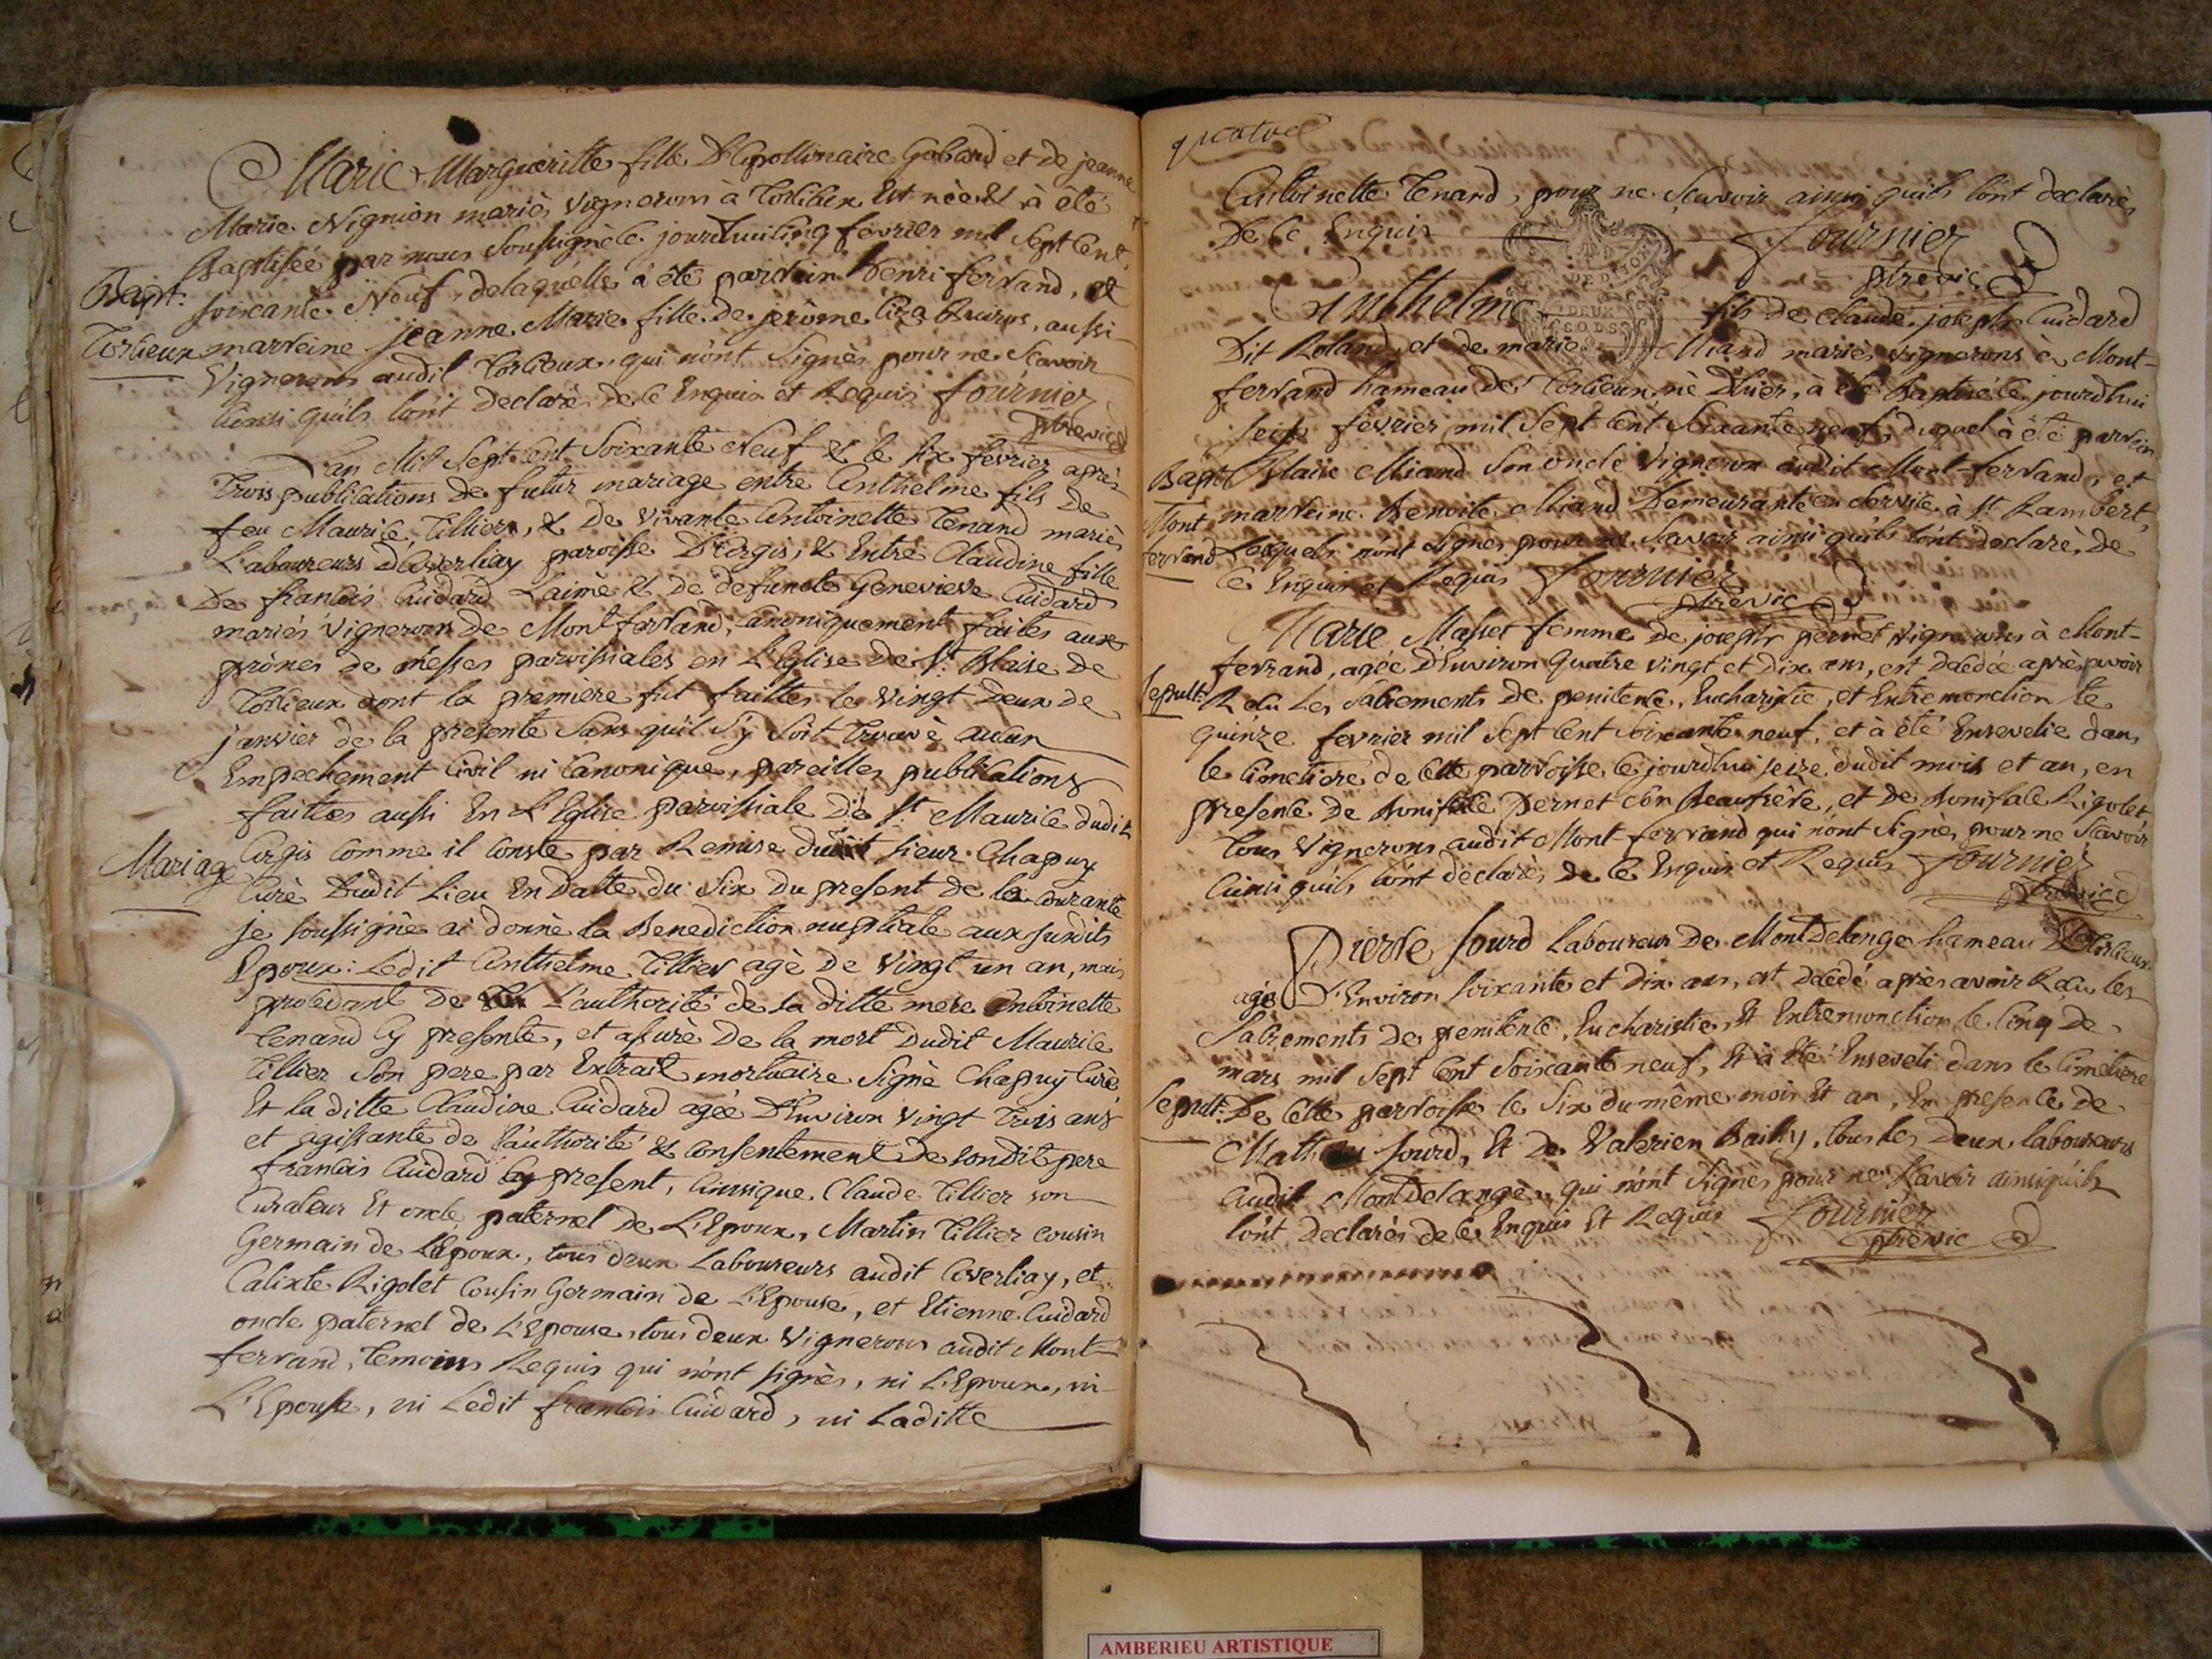 Marie Margueritte fille D'Apollinaire Gobard et de jeanne
Marie Vignion mariés vignerons à Torcieux Est née et à été
Baptisée par nous Soussigné le jourdhui cinq fevrier mil Sept Cent
Bapt: soixante Neuf, delaquelle à été parrein henri ferrand, et
Torcieux marreine jeanne Marie fille de jerôme aussi
Vignerons audit Torcieux, qui n'ont Signés pour ne Scavoir
Ainsi qu'ils l'ont Declaré de ce Enquis et Requis fournier
ptrevic
L'an Mil Sept Cent Soixante Neuf et le six fevrier après
Trois publications de futur mariage entre Anthelme fils de
feu Maurice Tillier, & de vivante Antoinette Tenand mariés
Laboureurs D'Averliay paroisse D'Argis, & Entre Claudine fille
De francois Cuidard Lainé & de defuncte Genevieve Cuidard
mariés vignerons de Montferrand, Canoniquement faites aux
prônes de Messes paroissiales en L'Eglise de St. Blaise de
Torcieux dont la premiere fut faitte le vingt Deux de
janvier de la presente Sans qu'il S'y Soit Trouvé aucun
Empechement Civil ni Canonique, pareilles publications
faittes aussi En L'Eglise paroissiale de St. Maurice dudit
Mariage Argis comme il Conste par Remise dudit Sieur Chapuy
Curé Dudit Lieu En Datte du Six Du present de la courante
je soussigné ai donné la Benediction nuptiale aux susdits
Epoux: Ledit Anthelme Tillier agé de Vingt un an, mais
procedant de L'authorité de sa ditte mere Antoinette
Tenand Cy presente, et assuré de la mort Dudit Maurice
Tillier Son pere par Extrait mortuaire Signé Chapuy Curé
Et la ditte Claudine Cuidard agée D'Environ vingt Trois ans
et agissante de l'authorité & consentement de sondit pere
francois Cuidard Cy present, Ainsique Claude Tillier son
Curateur Et oncle paternel de L'Epoux, Martin Tillier cousin
Germain de L'Epoux, tous deux Laboureurs audit Averliay, et
Calixte Rigolet Cousin Germain de L'Epouse, et Etienne Cuidard
oncle paternel de L'Epouse, tous deux Vignerons audit Mont-
ferrand, Temoins Requis qui n'ont signés, ni L'Epoux, ni
L'Epouse, ni Ledit francois Cuidard, ni Laditte
Antoinette Tenand, pour ne Scavoir ainsi quils l'ont declarés
De Ce Enquis Fournier
ptrevic
DE DIJON
DEUX
SOLS
Anthelme fils de Claude joseph Cuidard
Dit Roland, et de marie Miand mariés vignerons à Mont-
ferrand hameau de Torcieux, né D'hier, à été Baptisé le jourdhui
seize fevrier mil Sept Cent Soixante neuf, duquel à été parrein
Bapt: Blaise Miand Son oncle vigneron audit Mont-ferrand, et
Mont marreine Benoite Miand Demeurante en Service à St. Rambert,
ferrand Lesquels n'ont Signés pour ne Savoir ainsi qu'ils l'ont declaré, de
ce Enquis et Requis Fournier
ptrevic
Marie Masset femme de joseph pernet vignerons à Mont-
ferrand, agée D'Environ Quatre vingt et Dix ans, est Decedée après avoir
Sepult: Recu Les Sacrements de penitence, Eucharistie, et Extremonction le
quinze fevrier mil Sept Cent Soixante neuf, et à été Ensevelie dans
le Cimetiere de Cette parroisse le jourdhui seize dudit mois et an, en
presence de Boniface Pernet Son Beaufrére, et de Boniface Rigolet
tous Vignerons audit Mont-ferrand qui n'ont Signés, pour ne Scavoir
Ainsi quils l'ont déclarés de ce Enquis et Requis Fournier
ptrevic
Pierre Sourd Laboureur De MontDelange hameau De Torcieux
agé D'Environ Soixante et Dix ans, est Decedé après avoir Recu les
Sacrements de penitence, Eucharistie, Et Extremonction le Cinq De
mars mil Sept Cent Soixante neuf, Et à été Enseveli dans le Cimetiere
Sepult: De Cette parroisse le Six du même mois Et an, En presence de
Mathieu Sourd, Et De Valerien Bailly, tous les Deux laboureurs
audit MontDelange, qui n'ont Signés pour ne Savoir ainsi qu'ils
l'ont Declarés de ce Enquis Et Requis Fournier
ptrevic
AMBERIEU ARTISTIQUE